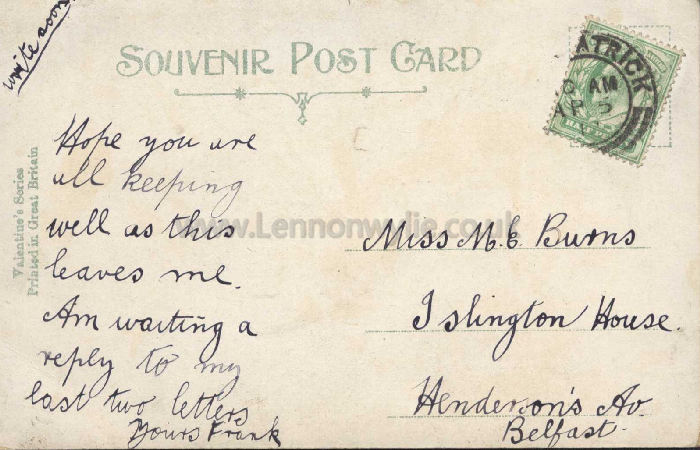 write soon
SOUVENIR POST CARD
Hope you are
all keeping
well as this
leaves me.
Am waiting a
reply to my
last two letters
Yours Frank
Valentine's Series
Printed in Great Britain
Miss M. E. Burns
Islington House.
Henderson's Av.
Belfast.
ATRICK
AM
AP 5
www.Lennonwylie.co.uk